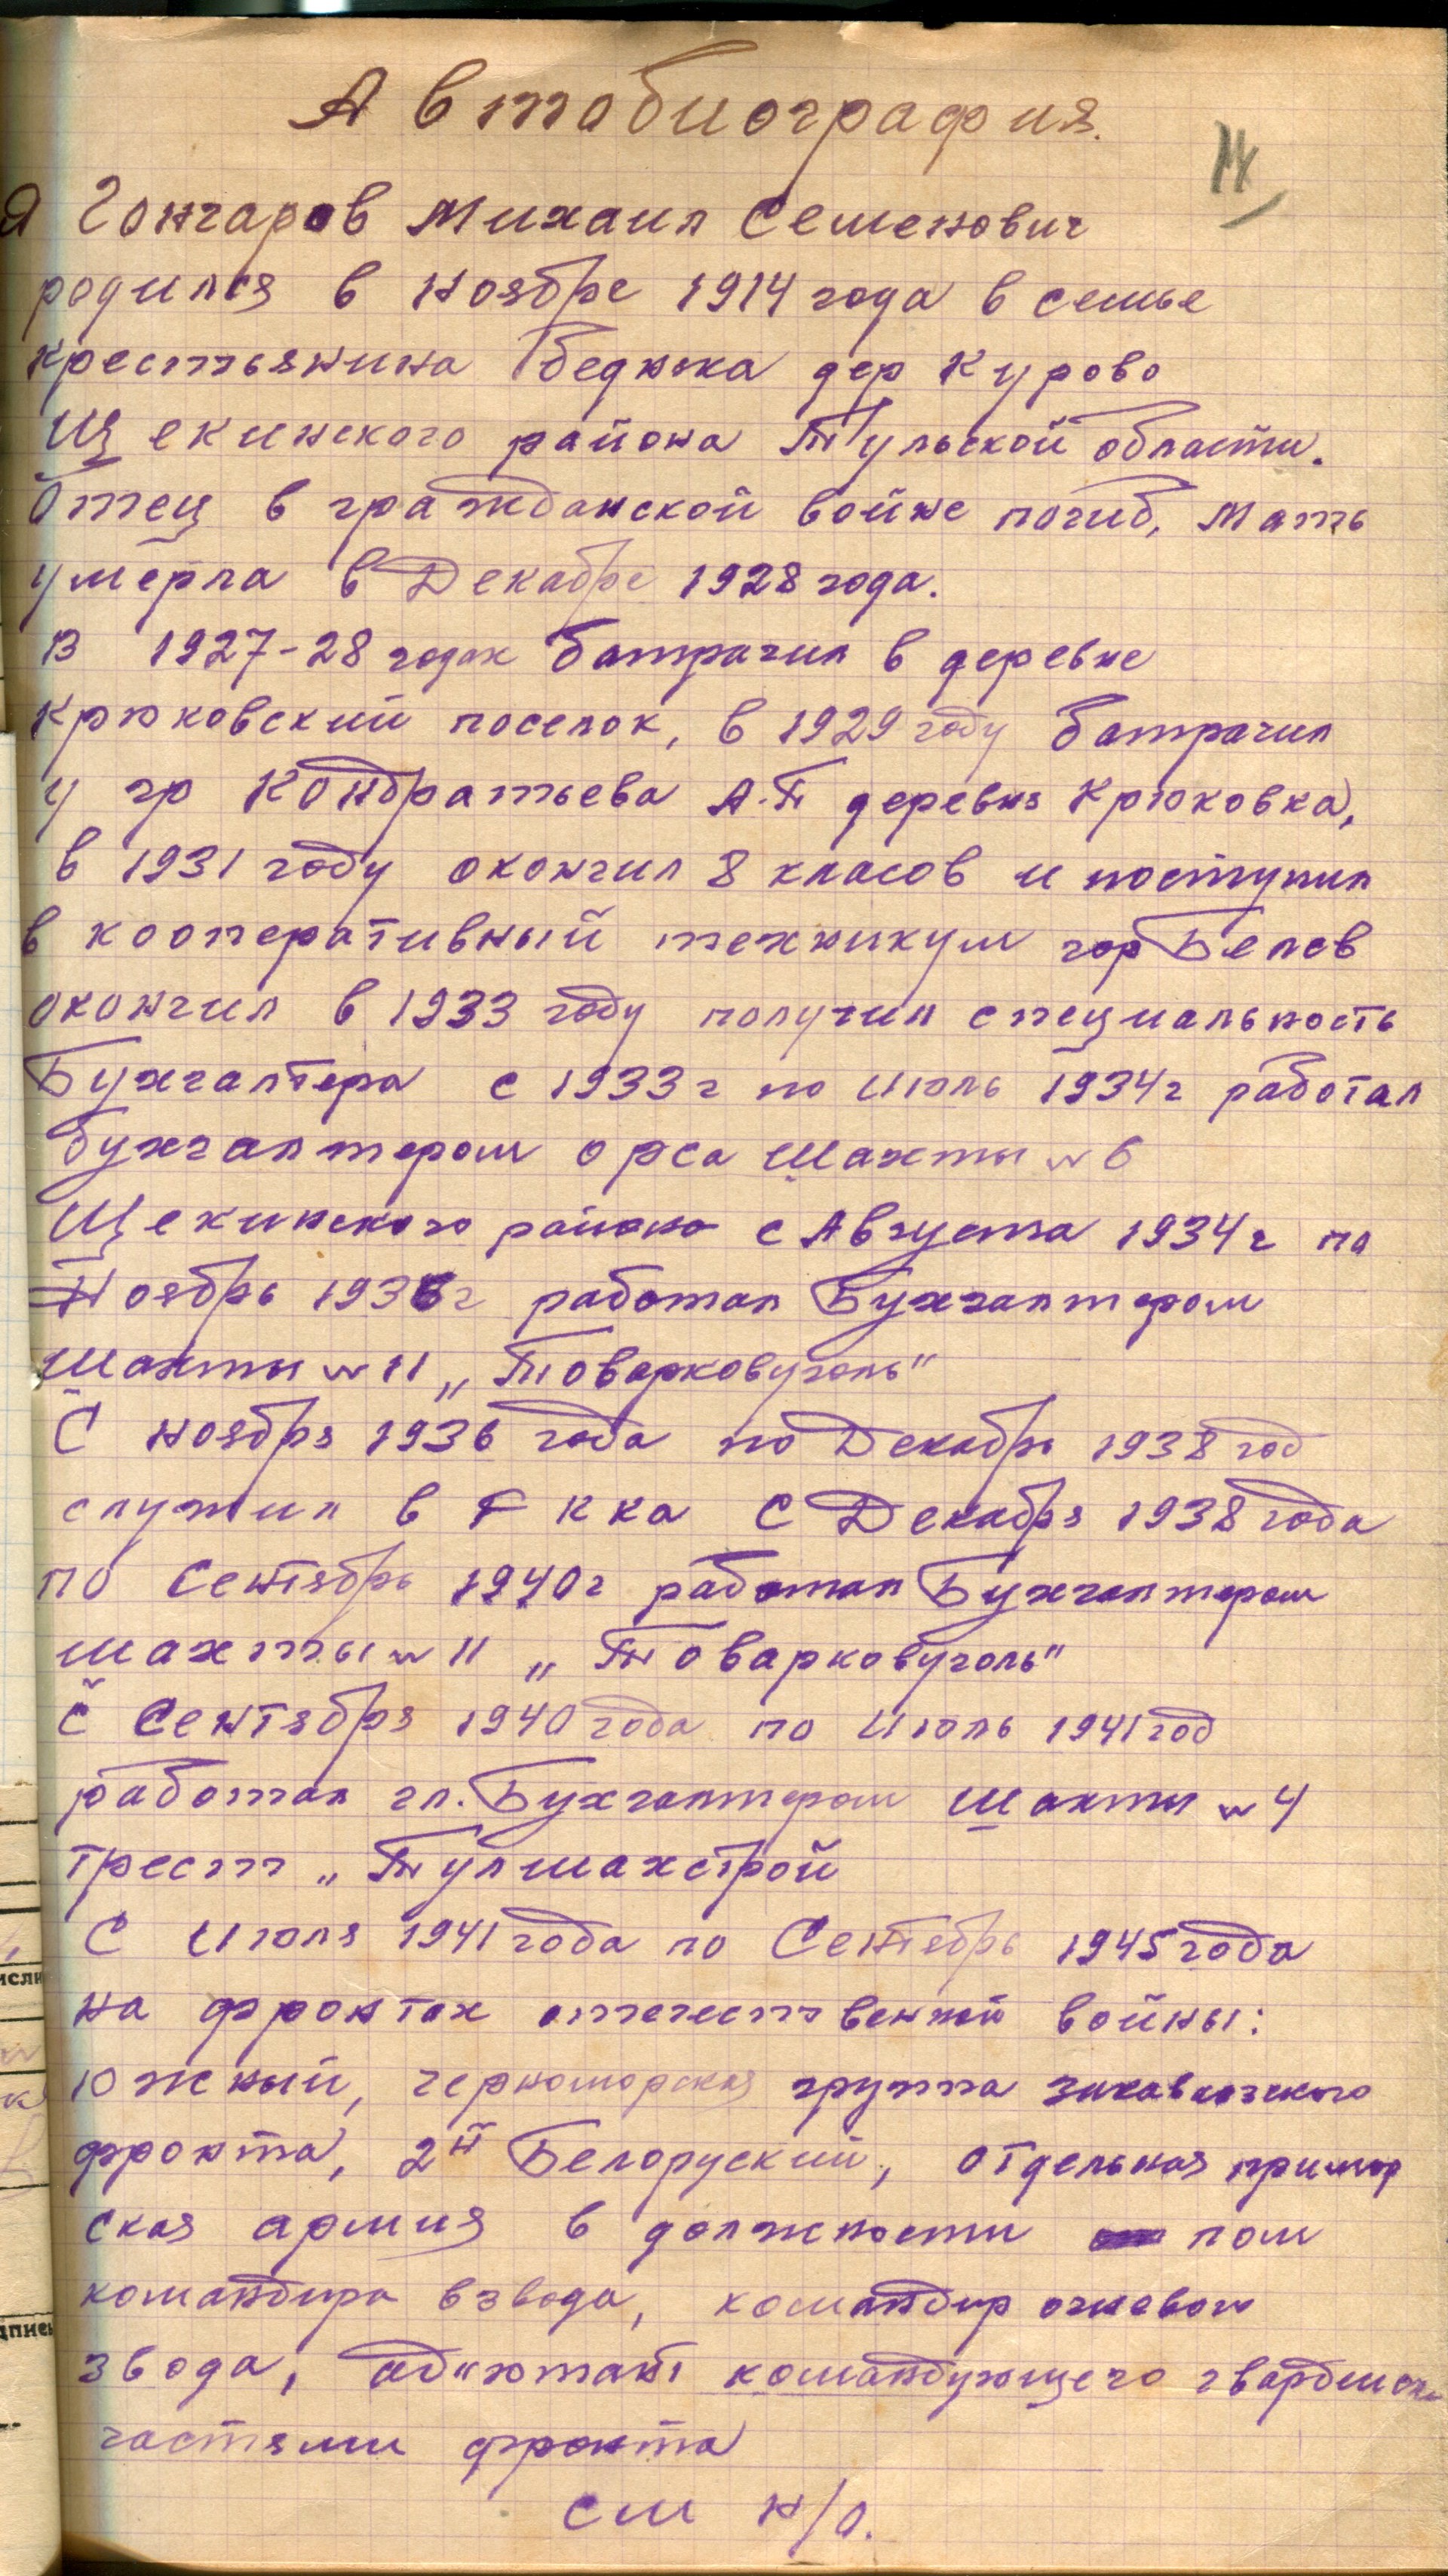 Автобиография.
14
Я Гончаров Михаил Семенович
родился в Ноябре 1914 года в семье
крестьянина бедняка дер Курово
Щекинского района Тульской области.
Отец в гражданской войне погиб, Мать
умерла в Декабре 1928 года.
В 1927-28 годах батрачил в деревне
Крюковский поселок, в 1929 году батрачил
у гр Кондратьева А.П деревня Крюковка,
в 1931 году окончил 8 класов и поступил
в кооперативный техникум гор Белев
окончил в 1933 году получил специальность
Бухгалтера с 1933 г по Июль 1934 г работал
бухгалтером орса Шахты №6
Щекинского района с Августа 1934 г по
Ноябрь 1936 г работал Бухгалтером
Шахты №11 „Товарковуголь"
С ноября 1936 года по Декабрь 1938 год
служил в РККА С Декабря 1938 года
по Сентябрь 1940 г работал Бухгалтером
шахты №11 „Товарковуголь"
С Сентября 1940 года по Июль 1941 год
работал гл. Бухгалтером Шахты №4
трест „Тулшахстрой
С Июля 1941 года по Сентебрь 1945 года
на фронтах отечественной войны:
Южный, черноморская группа закавказского
фронта, 2й Белоруский, отдельная примор
ская армия в должности пом
командира взвода, командир огневого
звода, адъютант командующего гвардейски
частями фронта
см н/о.